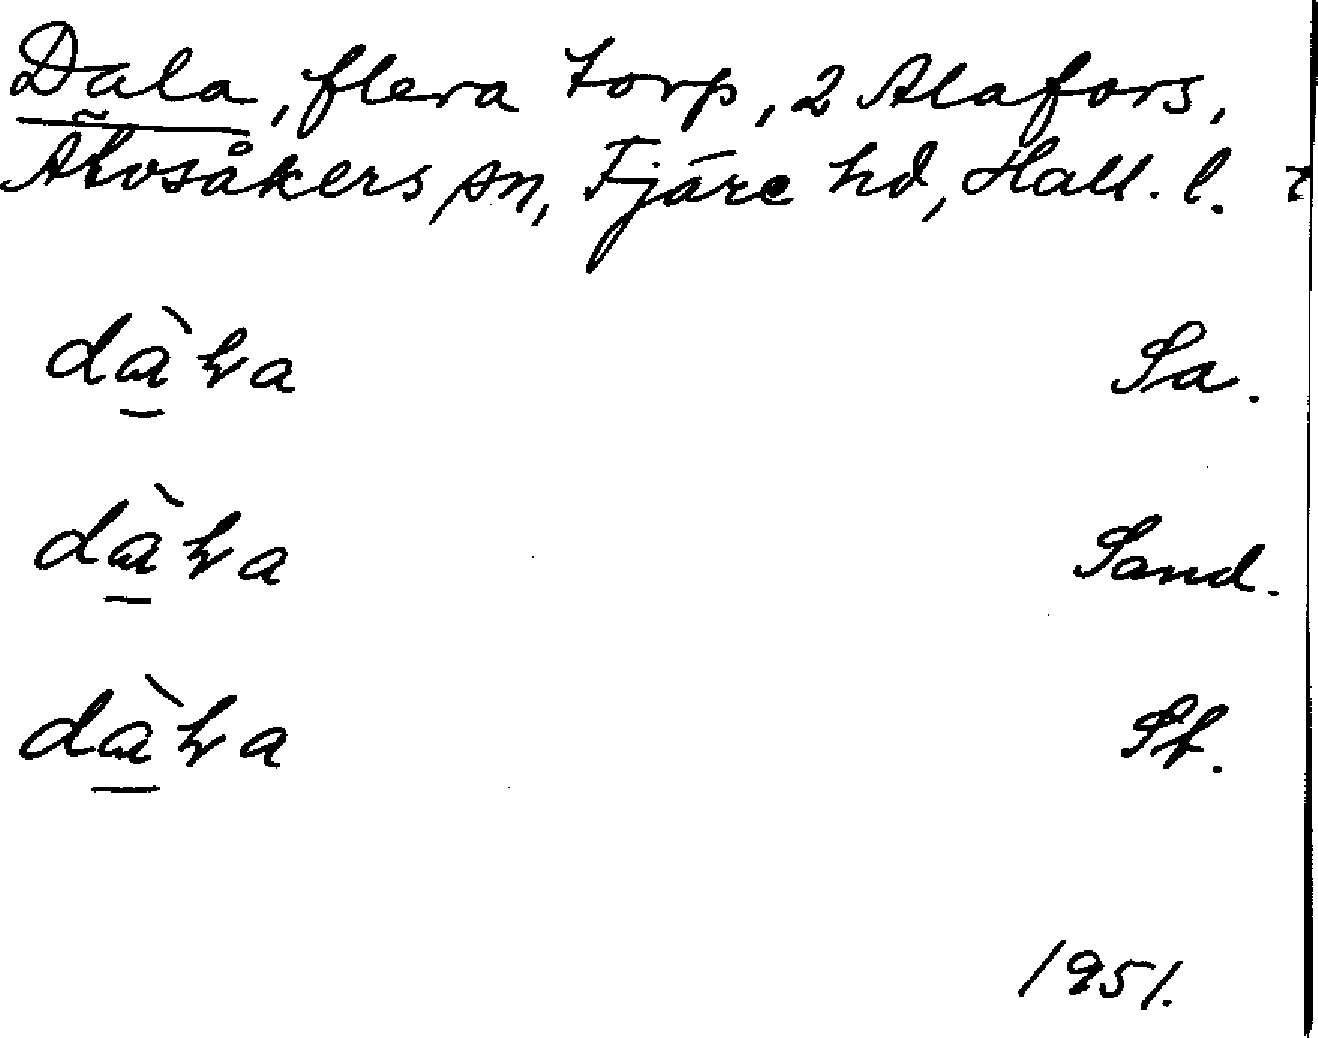 Dala, flera torp, 2 Alafors,
Älvsåkers sn, Fjäre hd, Hall. l. t
dàɫa Sa.
dàɫa Sand.
dàɫa St.
1951.